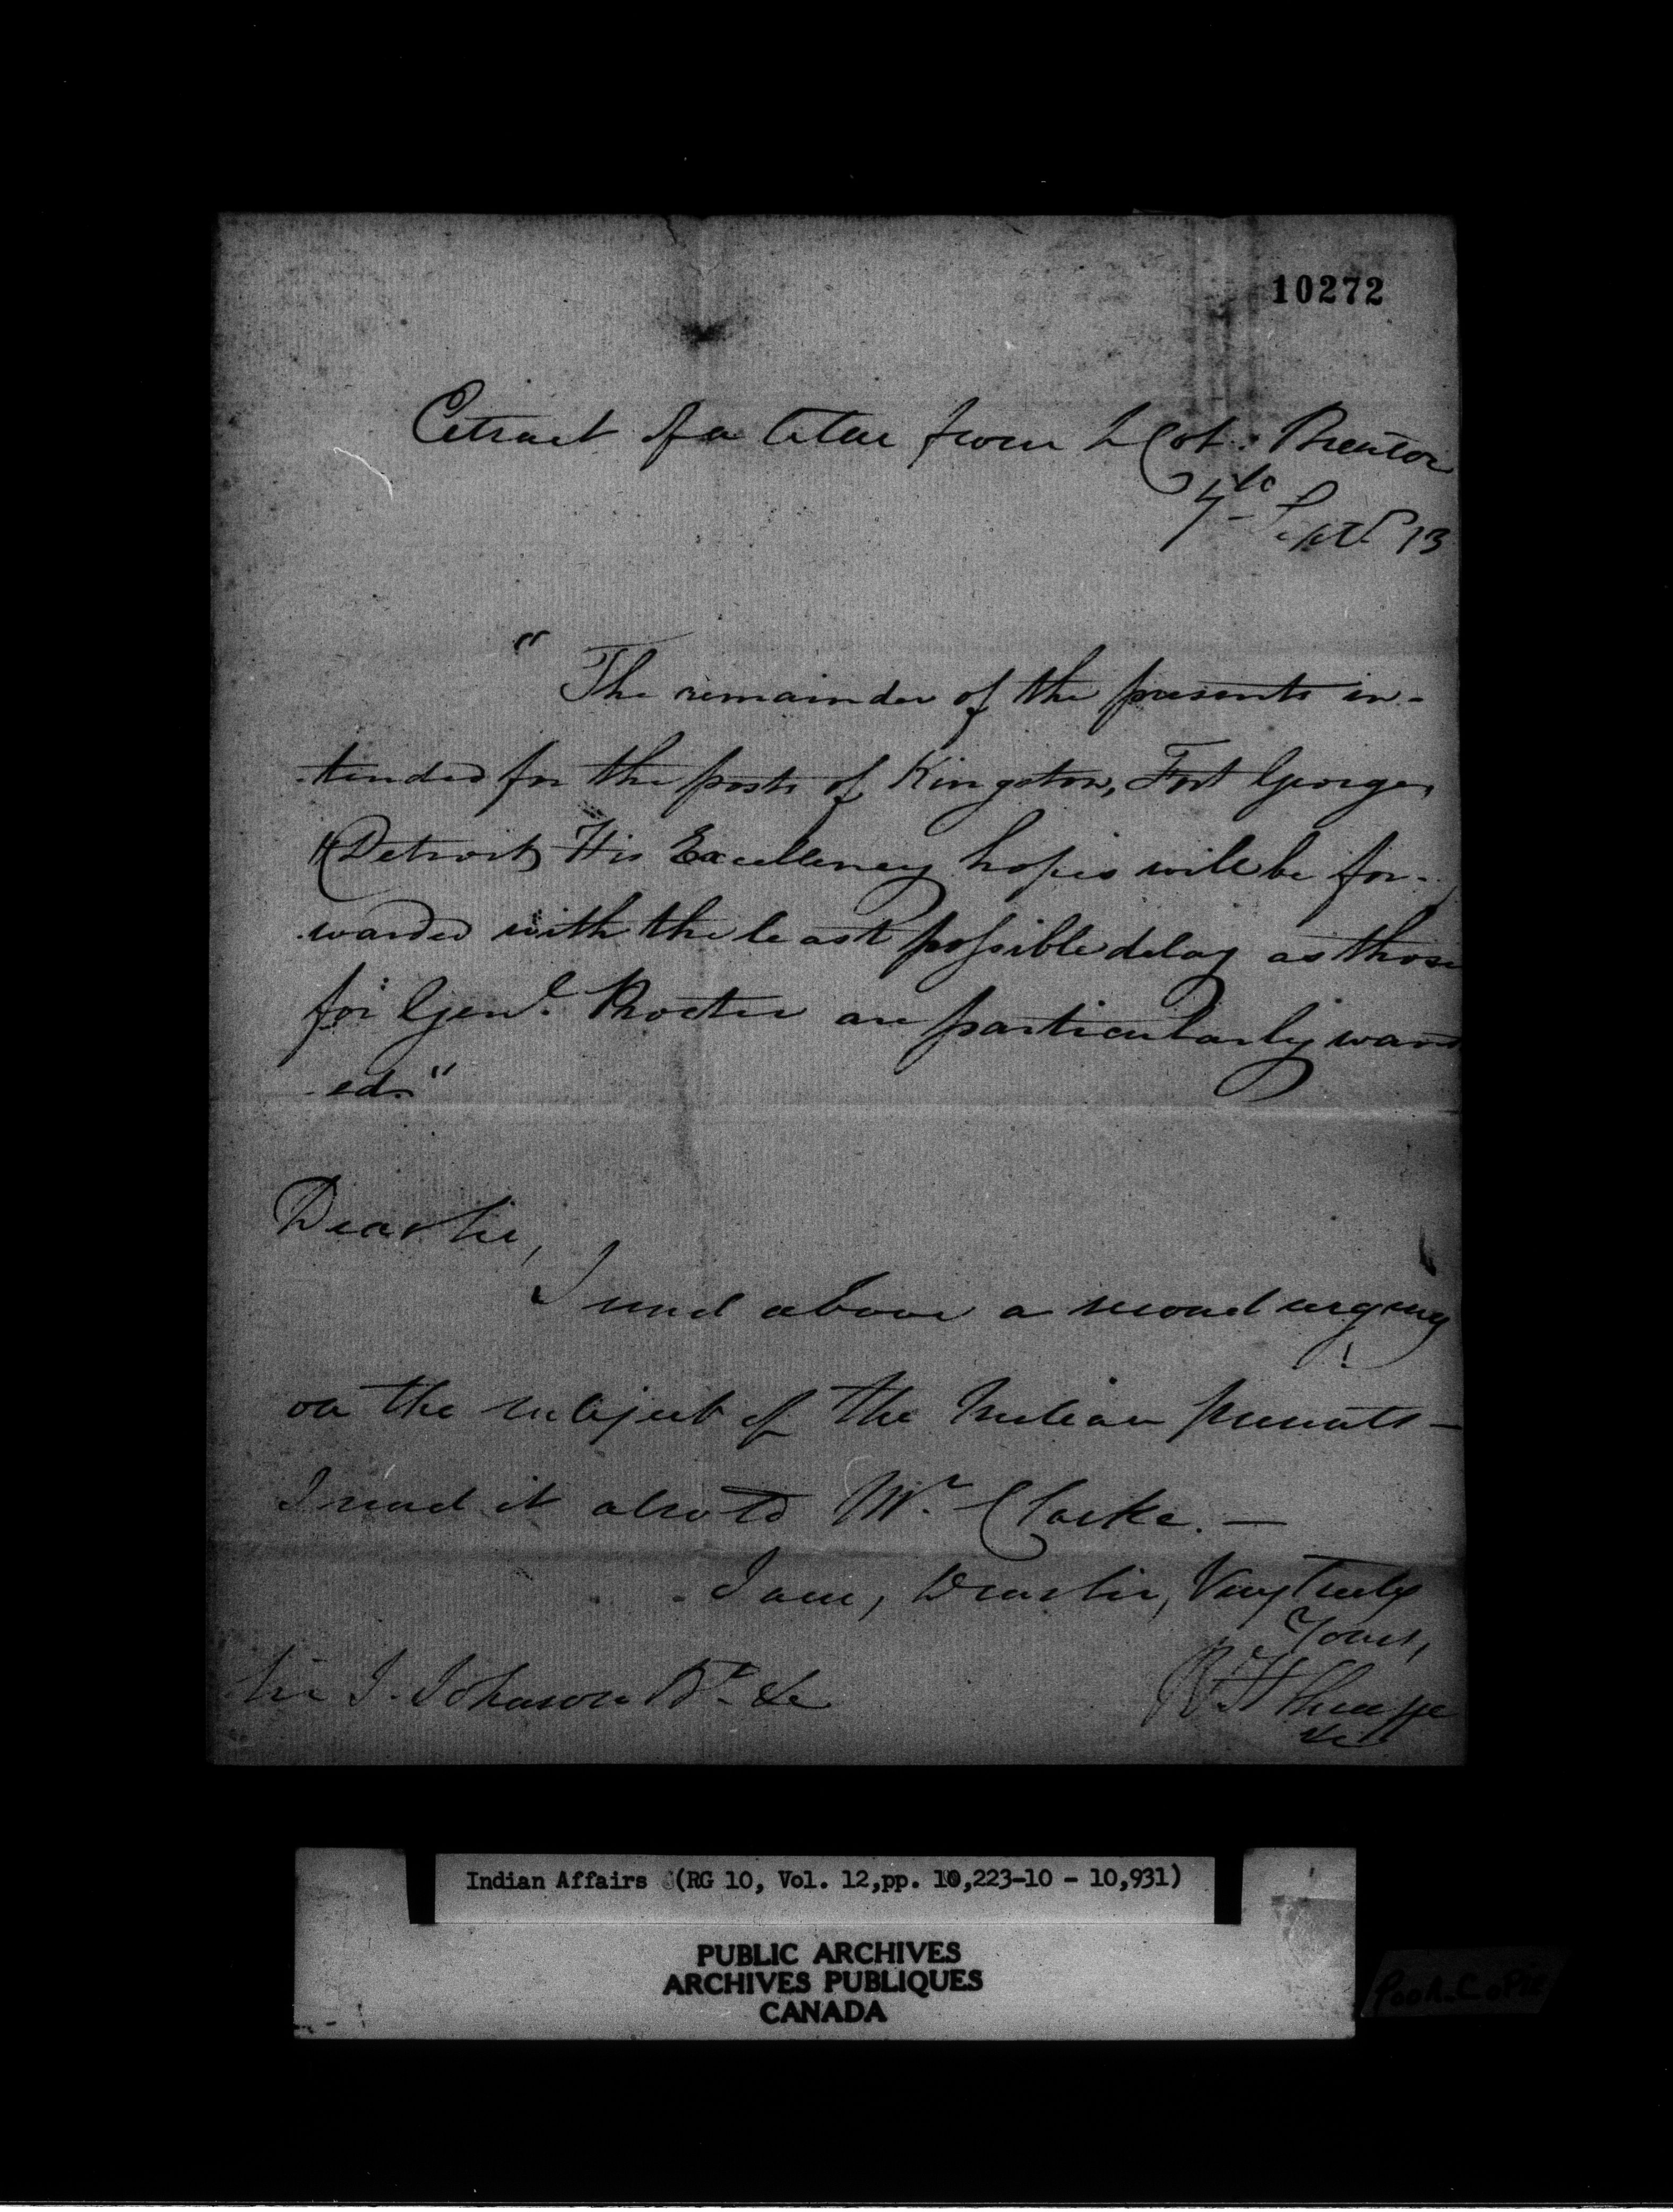 10272
Extract of a letter from L Col: Brenton
7th Sept 13
" The remainder of the presents in-
tended for the posts of Kingston, Fort George,
& Detroit, His Excellency hopes will be for-
warded with the least possible delay as those
for Genl. Procter are particularly want
-ed."
Dear Sir,
I send above a second urging
on the subject of the Indian presents —
I send it also to Mr. Clarke. —
I am, Dear Sir, Very Truly
Yours,
Sir J. Johnson Bt. &c
R H Sheaffe
&c
Indian Affairs (RG 10, Vol. 12, pp. 10,223-10 - 10,931)
PUBLIC ARCHIVES
ARCHIVES PUBLIQUES
CANADA
Poor Copie